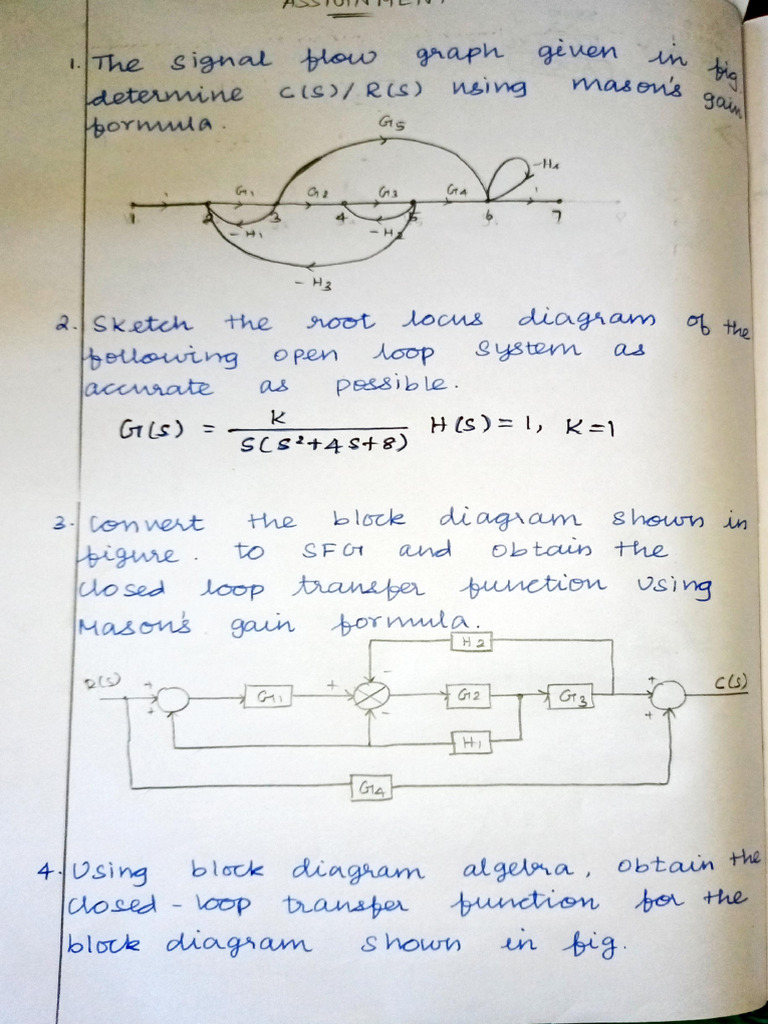 ASSIGNMENT
1. The signal flow graph given in fig
determine C(S)/R(S) using mason's gain
formula.
G5
-H4
1 G1 G2 G3 G4 1
1 2 3 4 5 6 7
-H1 -H2
-H3
2. Sketch the root locus diagram of the
following open loop system as
accurate as possible.
G(S) = K / S(S²+4S+8) H(S)=1, K=1
3. Convert the block diagram shown in
figure. to SFG and obtain the
closed loop transfer function using
Mason's gain formula.
H2
R(S) + + - + C(S)
G1 G2 G3
+ - +
H1
G4
4. Using block diagram algebra, obtain the
closed-loop transfer function for the
block diagram shown in fig.